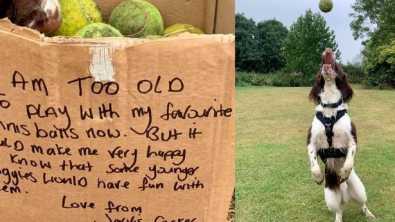 AM TOO OLD
TO PLAY WITH my favourite
tennis balls now. But it
would make me very happy
know that some younger
doggies would have fun with
them.
Love from